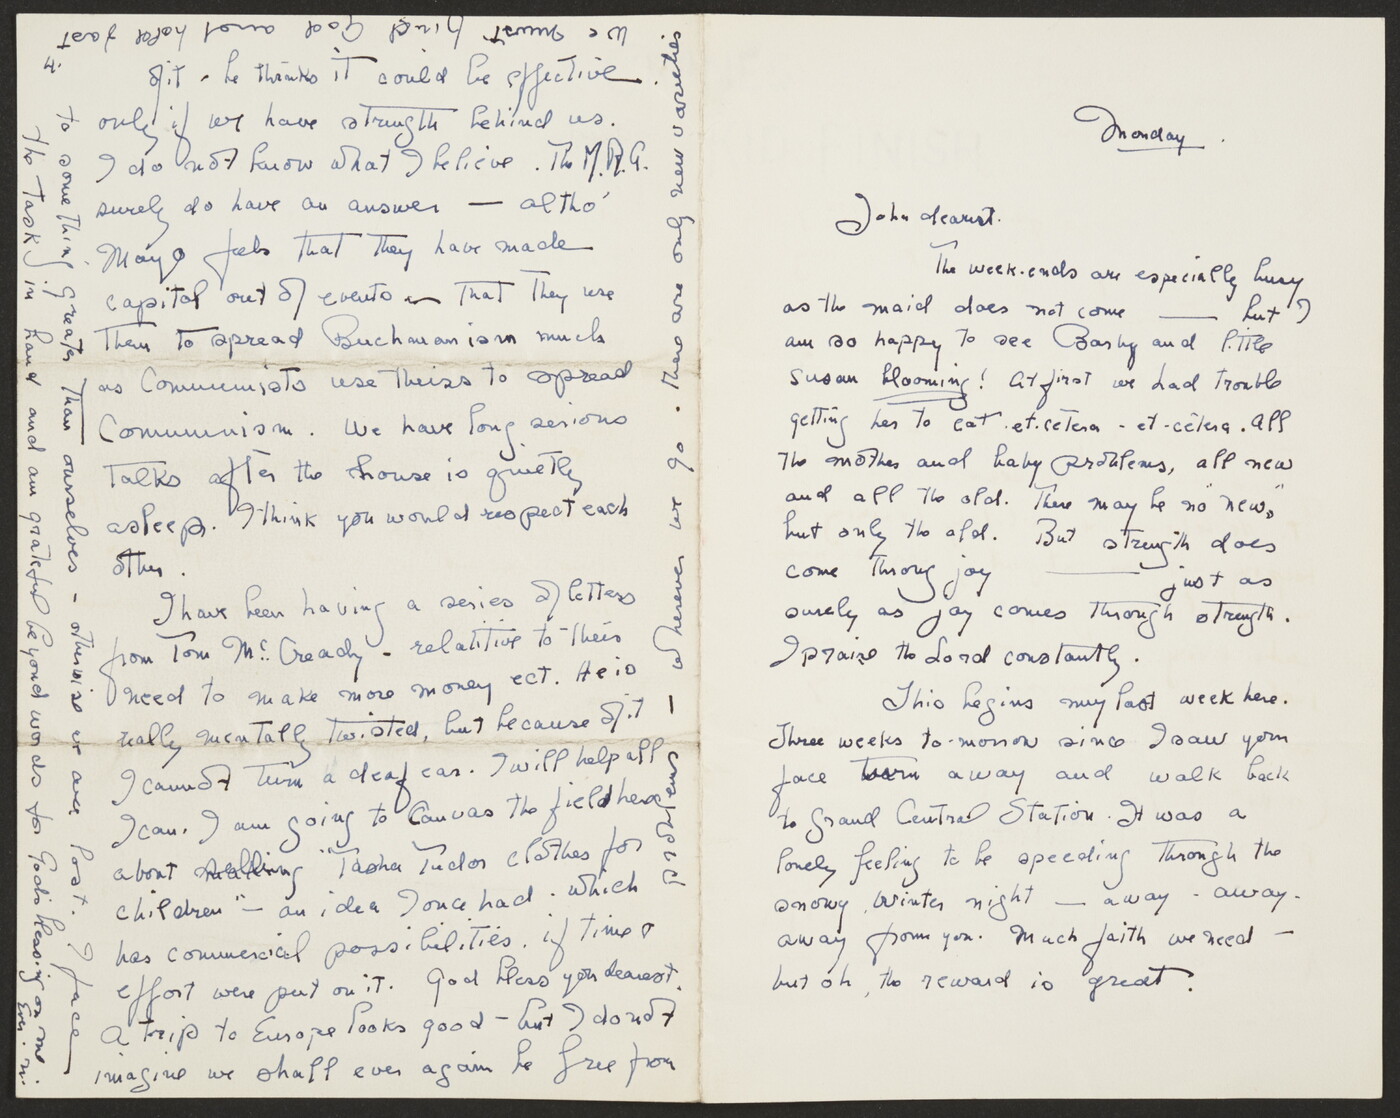 Monday.
John dearest.
The week-ends are especially busy
as the maid does not come — but I
am so happy to see Barby and little
Susan blooming! At first we had trouble
getting her to eat et-cetera - et-cetera. All
the mother and baby problems, all new
and all the old. There may be no "new,"
but only the old. But strength does
come throug joy — just as
surely as joy comes through strength.
I praise the Lord constantly.
This begins my last week here.
Three weeks to-morrow since I saw your
face turn away and walk back
to Grand Central Station. It was a
lonely feeling to be speeding through the
snowy winter night — away - away -
away from you. Much faith we need —
but oh, the reward is great.
4.
of it - he thinks it could be effective
only if we have strength behind us.
I do not know what I believe. The M.R.A.
surely do have an answer — altho'
Mayo feels that they have made
capital out of events — that they use
them to spread Buchmanism much
as Communists use theirs to spread
Communism. We have long serious
talks after the house is quietly
asleep. I think you would respect each
other.
I have been having a series of letters
from Tom McCready - relatitive to their
need to make more money ect. He is
really mentally twisted, but because of it
I cannot turn a deaf ear. I will help all
I can. I am going to canvas the field here
about "Tasha Tudor clothes for
children" — an idea I once had - which
has commercial possibilities, if time &
effort were put on it. God bless you dearest.
A trip to Europe looks good — but I do not
imagine we shall ever again be free from
problems — wherever we go. There are only new varieties
We must find God and hold fast
to something greater than ourselves - otherwise we are lost. I face
the task in hand and am grateful beyond words for God's blessing on me.
Ever. N.